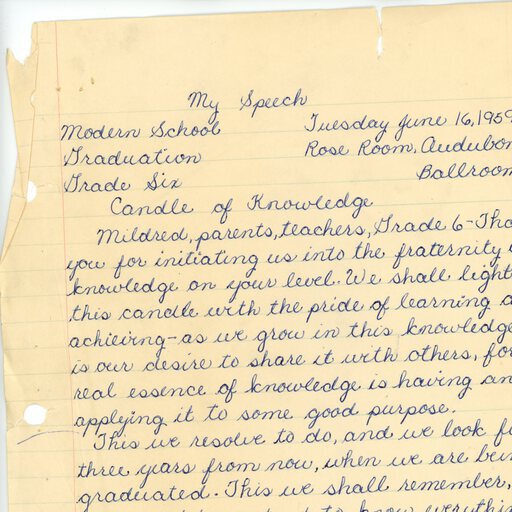 My Speech
Modern School Tuesday June 16, 1959
Graduation Rose Room, Audubon
Grade Six Ballroom
Candle of Knowledge
Mildred, parents, teachers, Grade 6-Tha
you for initiating us into the fraternity
knowledge on your level. We shall light
this candle with the pride of learning a
achieving-as we grow in this knowledge
is our desire to share it with others, for
real essence of knowledge is having an
applying it to some good purpose.
This we resolve to do, and we look f
three years from now, when we are bein
graduated. This we shall remember,
to know everythin